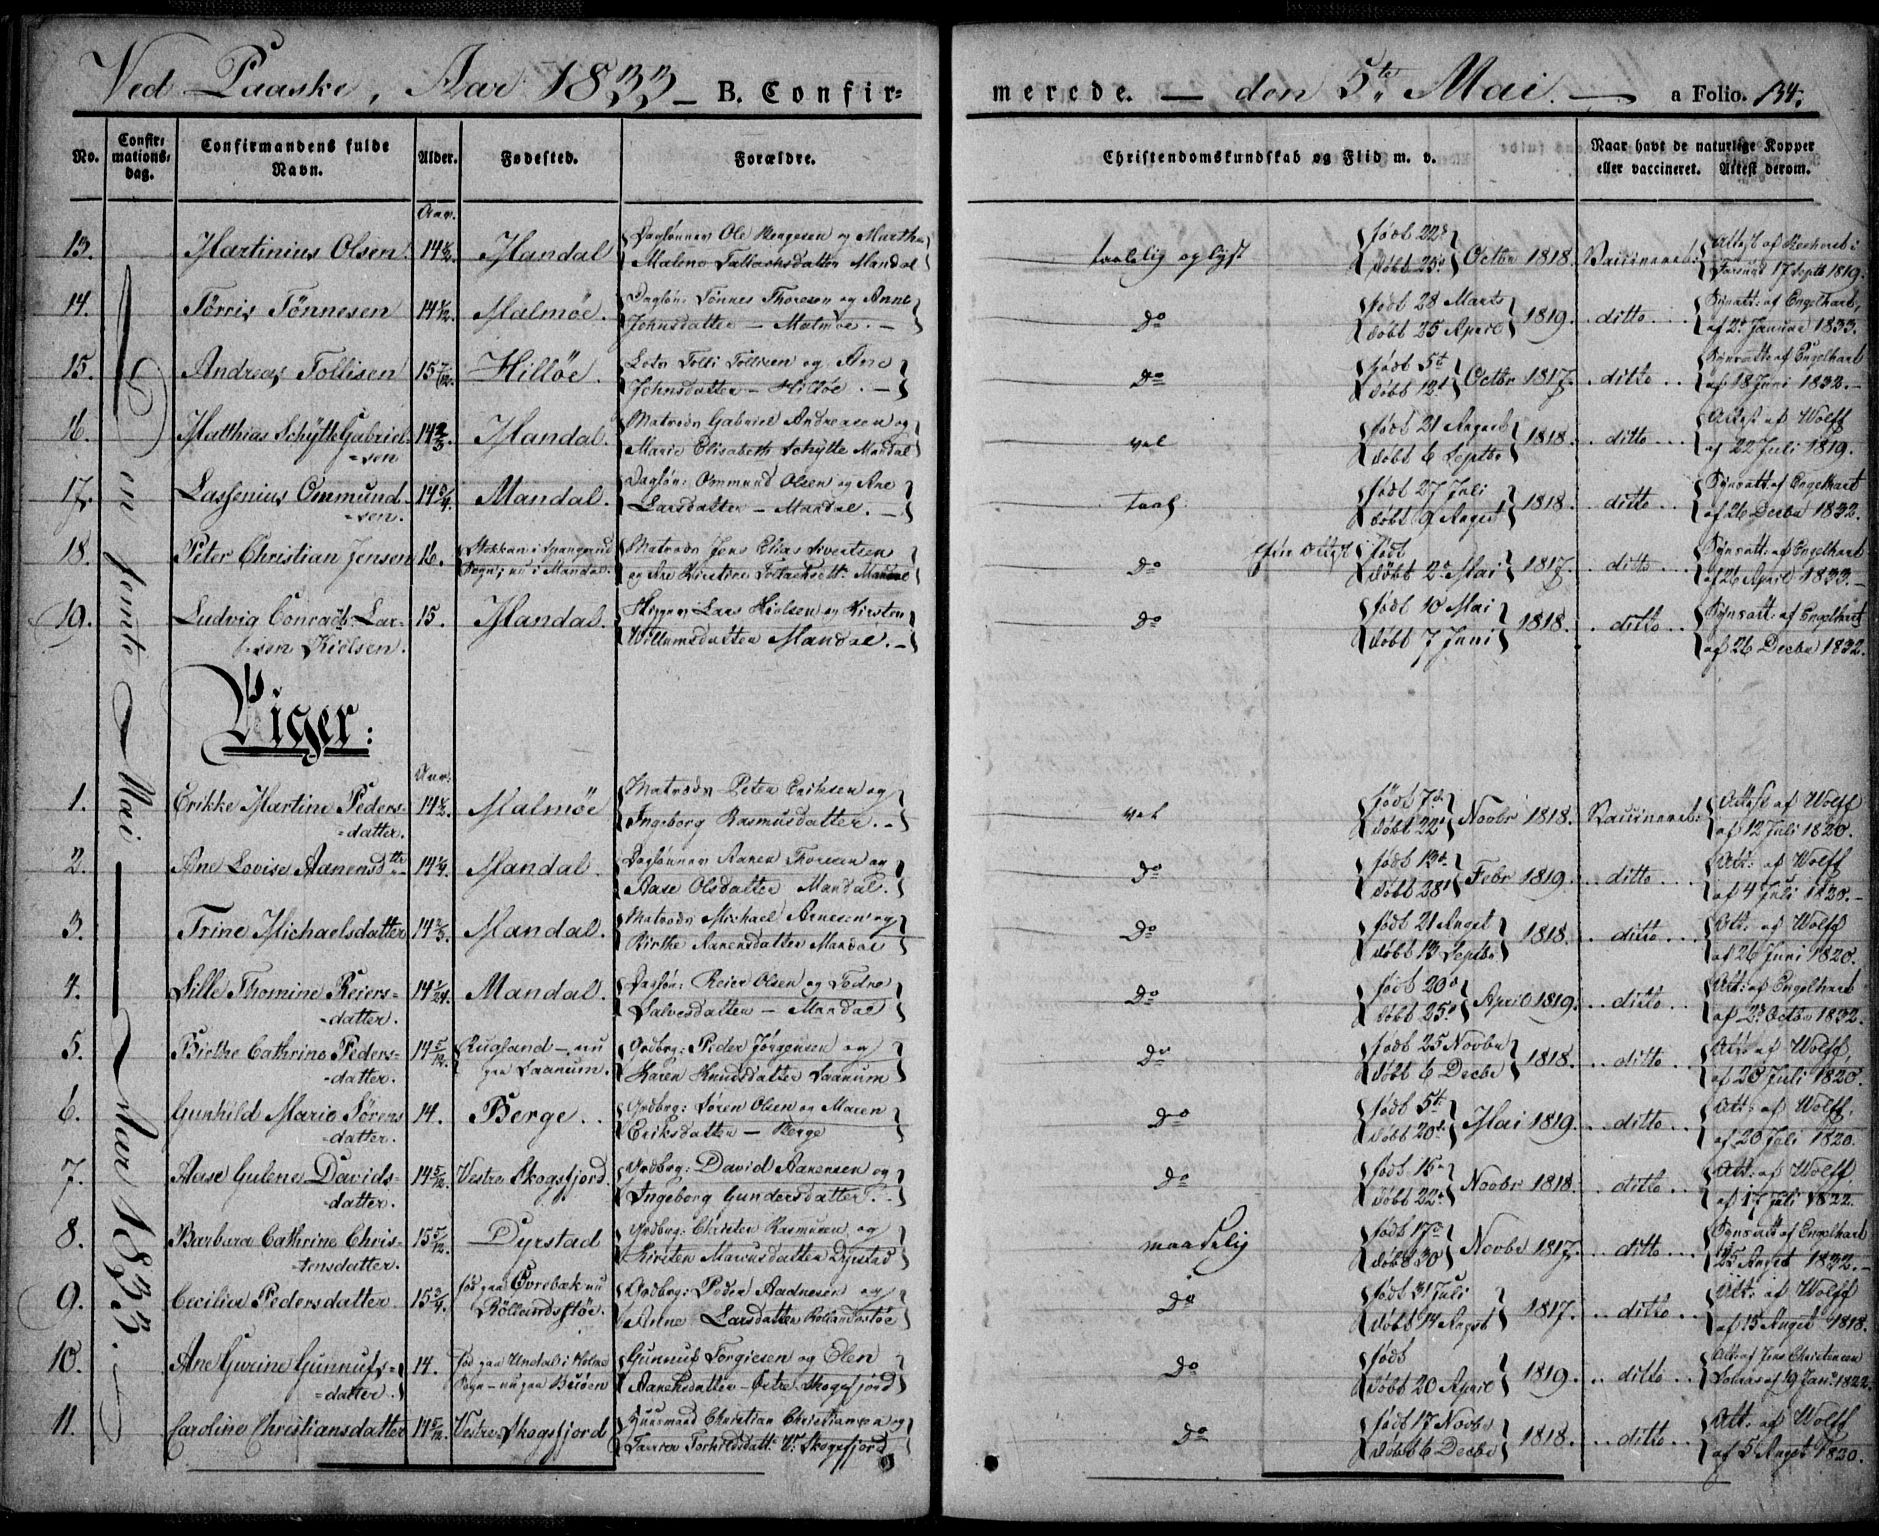 Ved Paaske, Aar 1833 — B. Confirmerede. — den 5te Mai. — a Folio. 134.
No. Confirmationsdag. Confirmandens fulde Navn. Alder. Fødested. Forældre. Christendomskundskab og Flid m. v. Naar havt de naturlige Kopper eller vaccineret. Attest derom.
Den femte Mai — Aar 1833.
Aar.
13. Martinius Olsen 14½ Mandal Daglønner Ole Bergesen og Marthe
Malene Tallachsdatter Mandal taalelig oplyst født 22d døbt 25d Octbr 1818. Vaccineret:
17 Septb 1819.
14. Tørris Tønnesen 14 1/12. Malmøe. Dagløn: Tønnes Thoresen og Anne
Johnsdatter — Malmøe. — Do født 28 Marts døbt 25 April 1819. ditto Synsatt: af Engelhart,
af 2d Januar 1833.
15. Andreas Tollisen 15 7/12. Hilløe. Lots Tolli Tollisen og Ane
Johnsdatter — Hilløe. — Do født 5te døbt 12te Octbr 1817. ditto Synsatt: af Engelhart
af 18 Juni 1832. —
16. Matthias Schytte Gabriel-
sen 14 2/3. Mandal. Matrods Gabriel Andreasen og
Marie Elisabeth Schytte Mandal vel født 21 August døbt 6 Septbr 1818. ditto Attest af Wolff
af 22 Juli 1819.
17. Lassenius Ommund-
sen. 14 3/4. Mandal. Dagløn: Ommund Olsen og Ane
Larsdatter — Mandal. — taal. født 27 Juli døbt 9 Augst 1818. ditto Synsatt: af Engelhart
af 26 Decbr 1832.
18. Peter Christian Jensen 16. Stokken i
Sogn; nu i Mandal. Matrods Jens Elias Sivertsen
og Ane Kirstine Mandal Do født døbt 2d Mai 1817. ditto Synsatt: af Engelhart
af 26 April 1833. —
19. Ludvig Conradt Lar-
sen Nielsen. 15. Mandal. Skipper Lars Nielsen og Kirsten
Willumsdatter Mandal. — Do født 10 Mai døbt 7 Juni 1818. ditto Synsatt: af Engelhart
af 26 Decbr 1832.
Piger:
Aar.
1. Erikke Martine Peders-
datter. 14½. Malmøe Matrods Peter Eriksen og
Ingeborg Rasmusdatter. — vel født 7de døbt 22d Novbr 1818. Vaccineret: Attest af Wolff
af 12 Juli 1820.
2. Ane Lovise Aanensdtr 14¼. Mandal. Daglønner Aanen Thoresen og
Aase Olsdatter Mandal. Do født 13d døbt 28d Febr 1819. ditto Att: af Wolff
af 4 Juli 1820. —
3. Trine Michaelsdatter 14 2/3. Mandal. Matrods Michael Arnesen og
Birthe Aanensdatter Mandal Do født 21 Augst døbt 13 Septbr 1818. ditto Att: af Wolff
af 26 Juni 1820.
4. Sille Thomine Reiers-
datter. 14 1/24. Mandal. Dagløn: Reier Olsen og
Salvesdatter — Mandal Do født 20d døbt 25d April 1819. ditto Att: af Engelhart
af 2d Octbr 1832.
5. Birthe Cathrine Peders-
datter. 14 5/12. Rugland — nu
paa Saanum. Grdbrg: Peder Jørgensen og
Karen Knudsdatter Saanum Do født 25 Novbr døbt 6 Decbr 1818. ditto Att: af Wolff,
af 20 Juli 1820.
6. Gunhild Marie Sørens
datter. 14. Berge. Grdbrg: Søren Olsen og Maren
Eriksdatter — Berge Do født 5te døbt 20d Mai 1819. ditto Att: af Wolff,
af 20 Juli 1820.
7. Aase Gulene Davids-
datter. 14 5/12. Vestre Skogsfjord. Grdbrg: David Aanensen og
Ingeborg Gundersdatter. — Do født 15d døbt 22d Novbr 1818. ditto Att: af Wolff,
af 17 Juli 1822.
8. Barbara Cathrine Chris-
tensdatter. 15 5/12. Dyrstad Grdbrg: Christen Rasmusen og
Kirsten Marcusdatter Dyrstad maadelig født 17d døbt 30 Novbr 1817. ditto Synsatt: af Engelhart
25 Augst 1832. —
9. Cecilia Pedersdatter 15¾. fød paa Øvrebæk nu
Røllandsstøe. Grdbrg: Peder Aadnesen og
Anne Larsdatter Rollandsstøe Do født 31 Juli døbt 14 Augst 1817. ditto Att: af Wolff
af 15 Augst 1818.
10. Ane Gurine Gunnufs-
datter. 14. fød paa Undal i Holme
Sogn — nu paa Gunnuf Torgiesen og Elen
Aanensdatter — Østre Skogsfjord Do født døbt 20 April 1819. ditto Att: af Jens Christensen
af 19 Janr 1822.
11. Caroline Christiansdatter 14 5/12. Vestre Skogsfjord Huusmand Christian Christiansen og
Torkildsdatt: V: Skogsfjord Do født 17 Novbr døbt 6 Decbr 1818. ditto Att: af Wolff
af 5 Augst 1820.